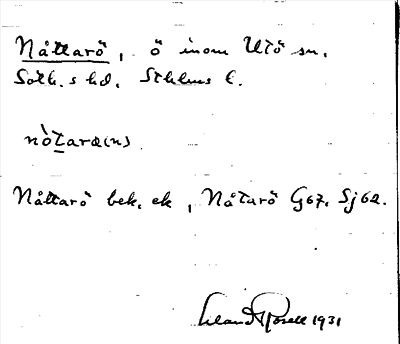 Nåttarö, ö inom Utö sn.
Sotk. s hd. Sthlms l.
nò̀tara(n)
Nåttarö bek. ek, Nåtarö G67. Sj62.
Erland Rosell 1931